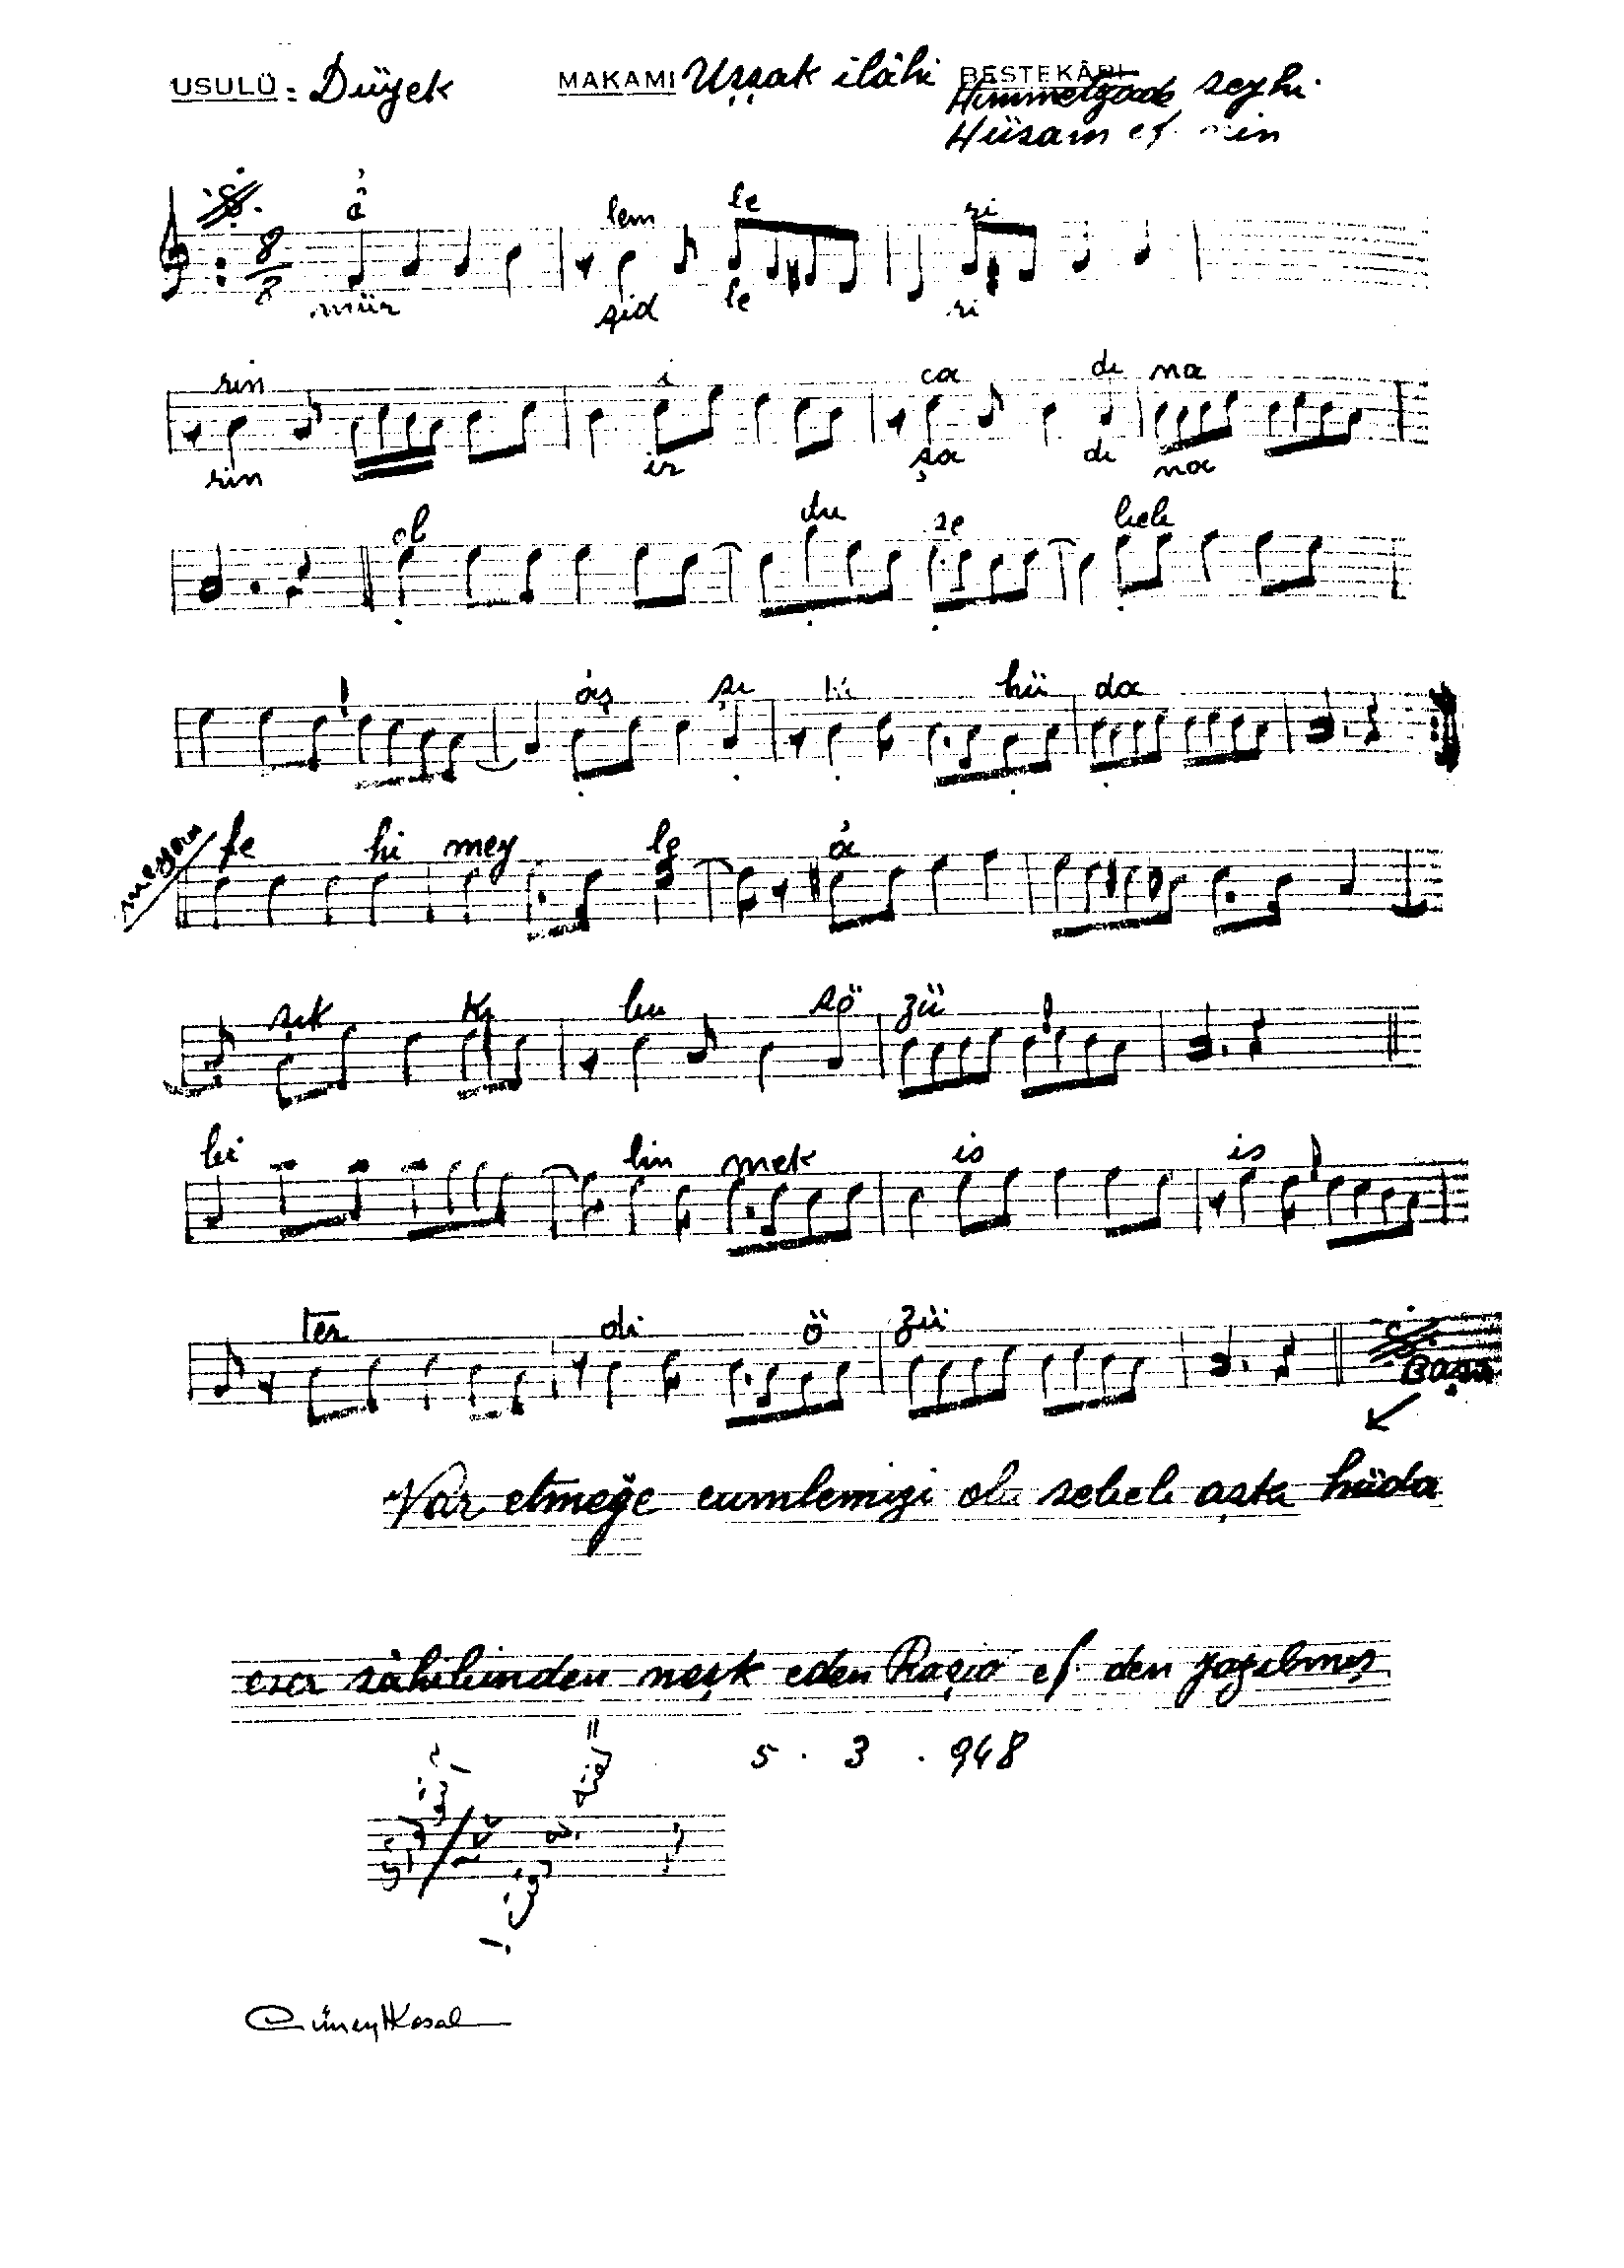 USULÜ : Düyek MAKAMI Uşşak ilâhi BESTEKÂRI Himmetzade şeyhi
Hüsam ef. nin
8/8
â lem le ri
mür şid le ri
rin i ca dı na
rin ir şa dı na
ol du se beb
aş kı hü da
meyan fe hi mey le â
şık kı bu sö zü
bi lin mek is is
ter di ö zü Başa
Var etmeğe cumlemizi oldu sebeb aşkı hüda
sâhibinden meşk eden Raşid ef. den yazılmış
5 . 3 . 948
Cüneyt Kosal